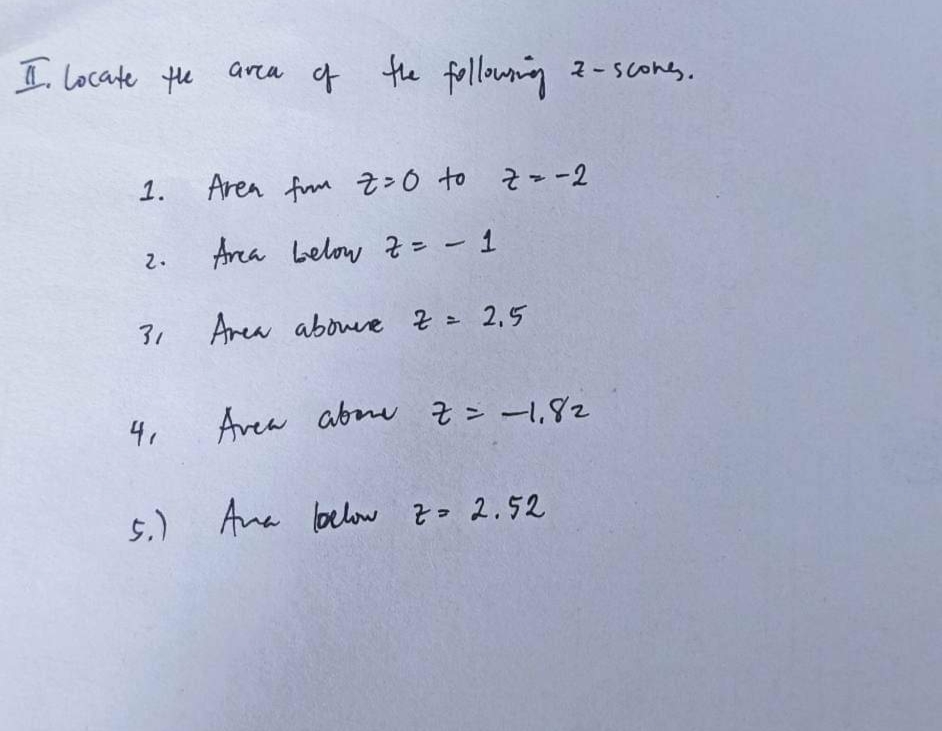 II. Locate the area of the following z-scores.
1. Area from z=0 to z=-2
2. Area below z = -1
3, Area above z = 2.5
4, Area above z = -1.82
5.) Area below z= 2.52